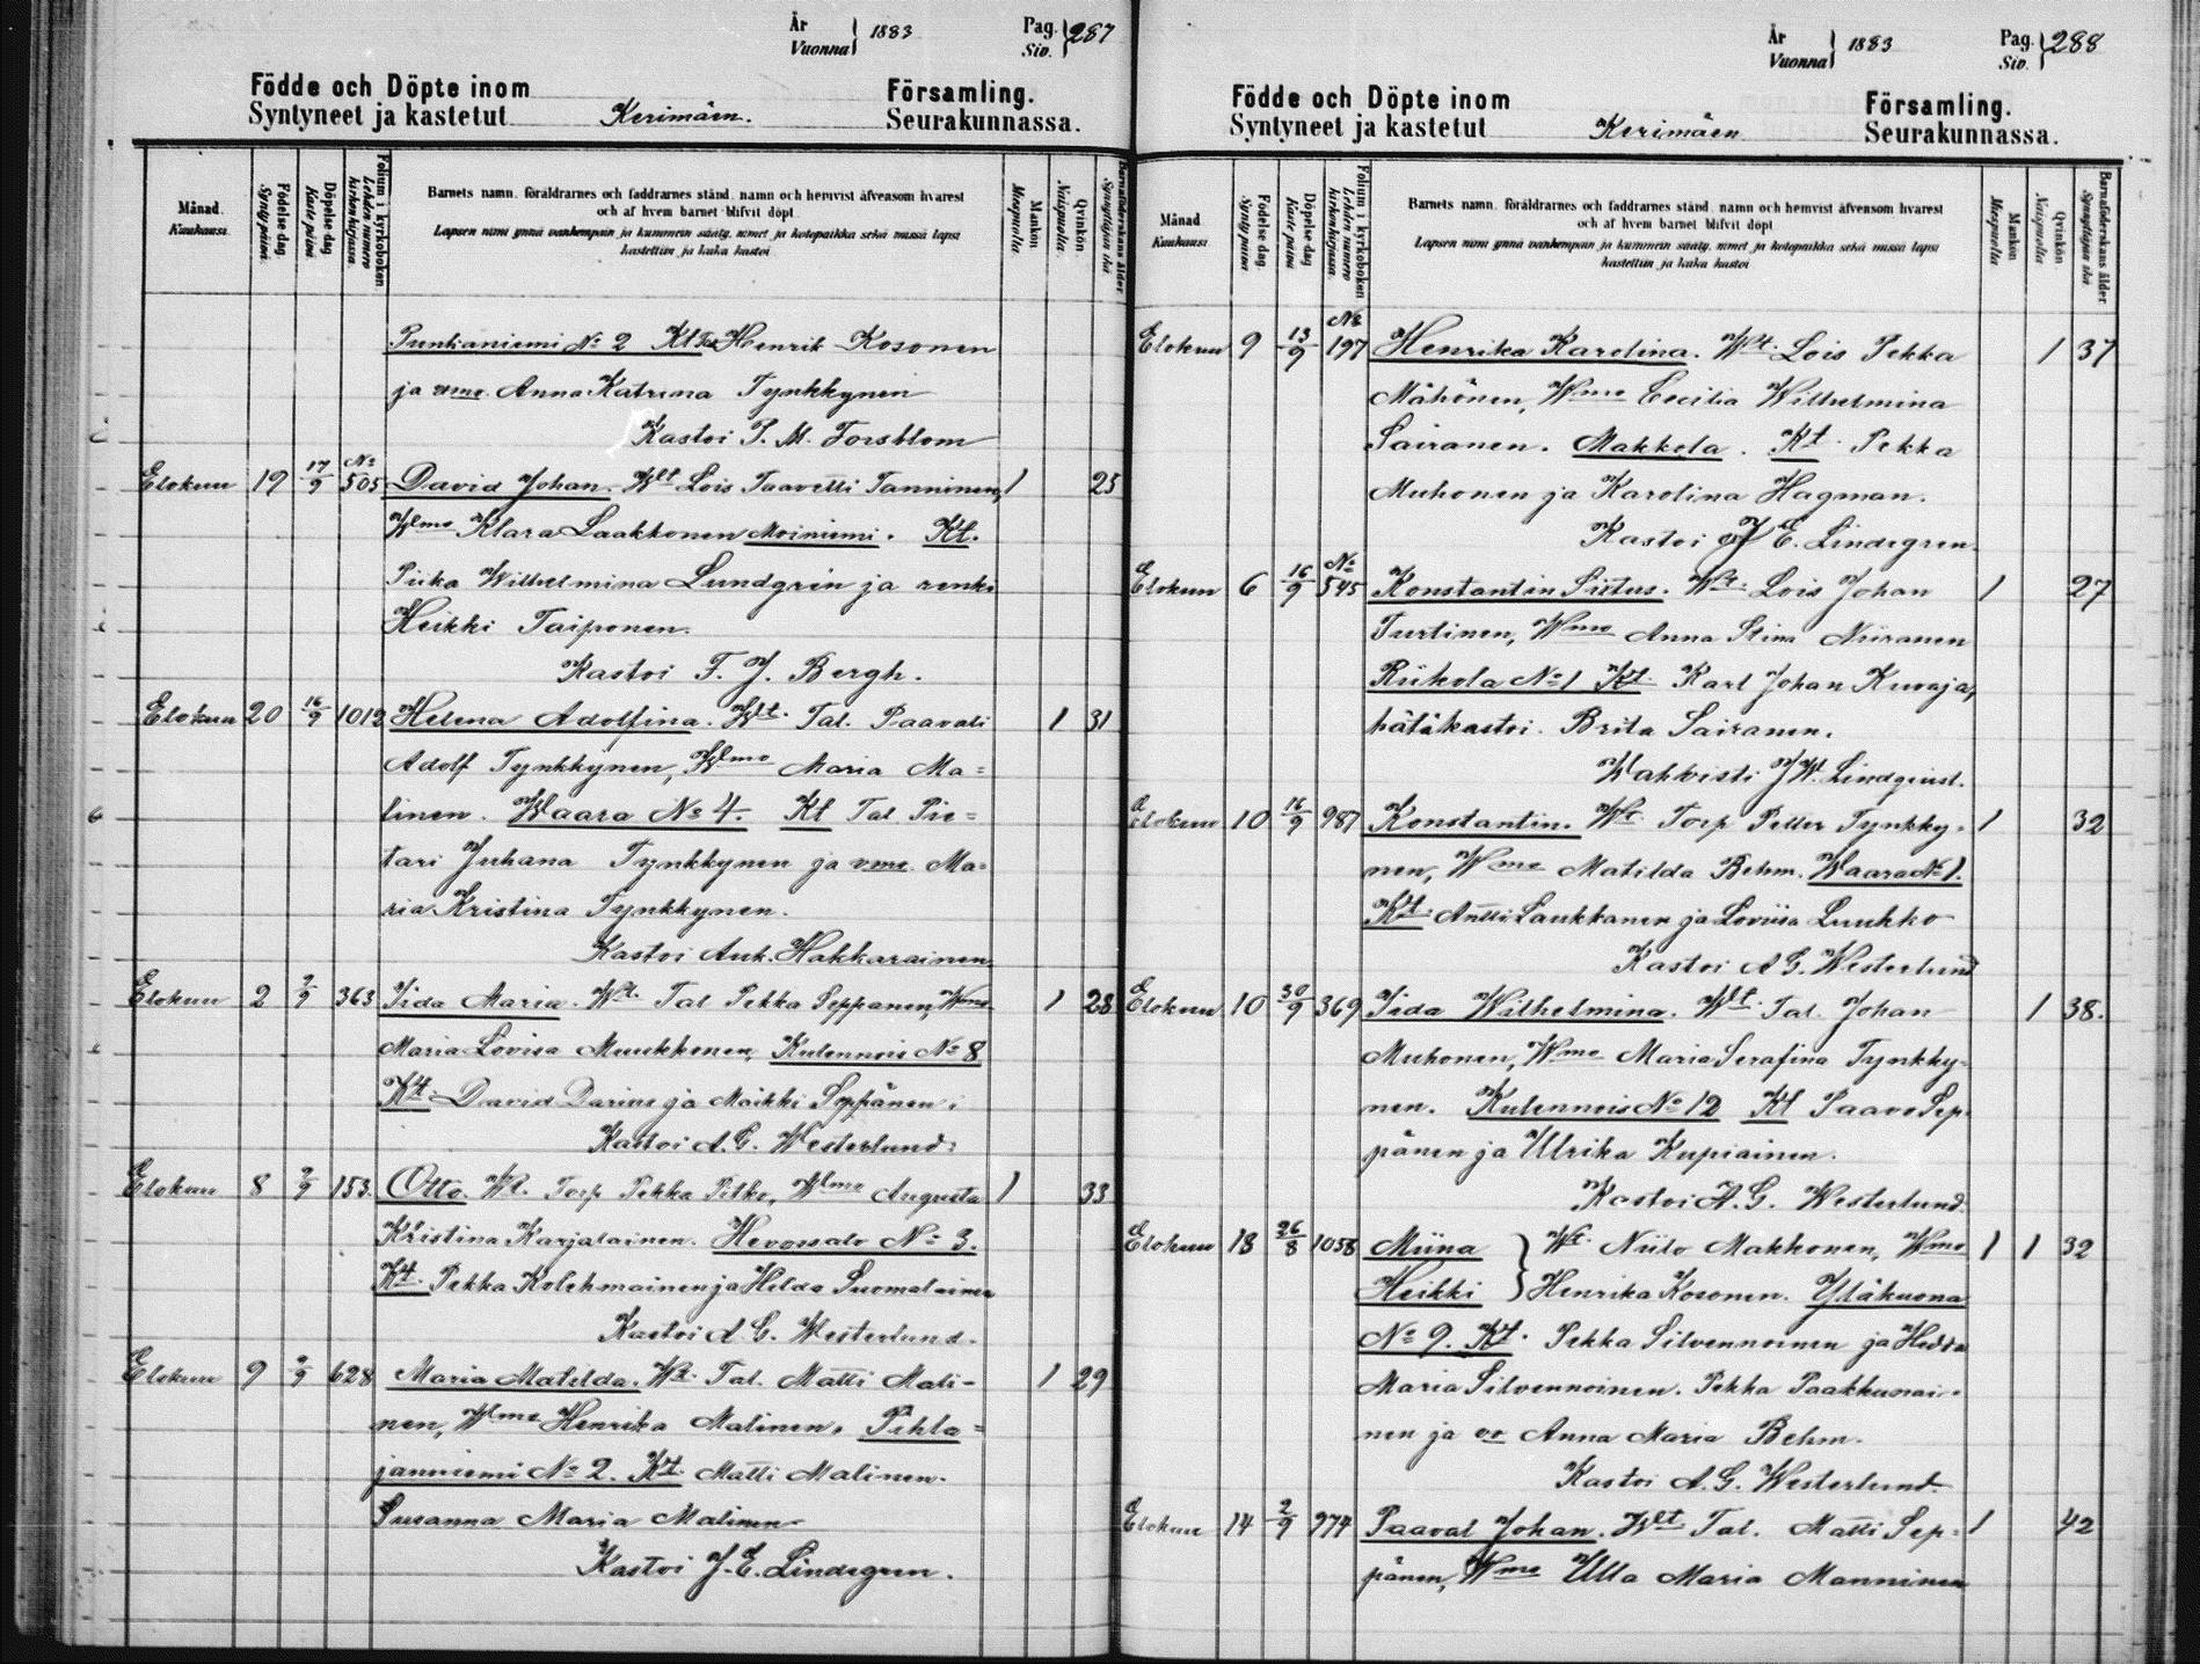 År
Vuonna } 1883
Pag.
Siv. } 287
Födde och Döpte inom
Syntyneet ja kastetut Kerimäen.
Församling.
Seurakunnassa.
Månad.
Kuukausi.
Födelse dag
Synty päivä.
Döpelse dag
Kaste päivä
Folium i kyrkoboken
Lehden numero kirkonkirjassa.
Barnets namn, föräldrarnes och faddrarnes stånd, namn och hemvist äfvensom hvarest
och af hvem barnet blifvit döpt.
Lapsen nimi ynnä vanhempain ja kummein sääty, nimet ja kotopaikka sekä missä lapsi
kastettiin ja kuka kastoi
Mankön
Miespuolia
Qvinkön.
Naispuolia.
Barnaföderskans ålder
Synnyttäjän ikä
Punkaniemi No 2 Kt Henrik Kosonen
ja vmo. Anna Katrina Tynkkynen
Kastoi P. M. Forsblom
Elokuu 19 17/9 No 505 David Johan. Wlt Lois Taavetti Tanninen, 1 25
Wlmo Klara Laakkonen Moiniemi. Kt.
Piika Wilhelmina Lundgrén ja renki
Heikki Taiponen.
Kastoi F. J. Bergh.
Elokuu 20 16/9 1012 Helena Adolfina. Wlt. Tal. Paavali 1 31
Adolf Tynkkynen, Wlmo Maria Ma=
linen. Waara No 4. Kt Tal Pie=
tari Juhana Tynkkynen ja vmo. Ma=
ria Kristina Tynkkynen.
Kastoi Auk. Hakkarainen.
Elokuu 2 2/9 363 Iida Maria. Wt. Tal Pekka Seppänen, Wmo 1 28
Maria Lovisa Muukkonen, Kulennois No 8
Kt. David Darius ja Maikki Seppänen.
Kastoi A. G. Westerlund.
Elokuu 8 2/9 153. Otto. Wt. Torp Pekka Pitko, Wlmo Augusta 1 33
Kristina Karjalainen. Hevossalo No 3.
Kt. Pekka Kolehmainen ja Hilda Suomalainen
Kastoi A. G. Westerlund.
Elokuu 9 2/9 628 Maria Matilda. Wt. Tal. Matti Mali- 1 29
nen, Wlmo Henrika Malinen. Pihla=
janniemi No 2. Kt. Matti Malinen.
Susanna Maria Malinen
Kastoi J. E. Lindegren.
År
Vuonna } 1883
Pag.
Siv. } 288
Födde och Döpte inom
Syntyneet ja kastetut Kerimäen
Församling.
Seurakunnassa.
Månad
Kuukausi
Födelse dag
Synty päivä
Döpelse dag
Kaste päivä
Folium i kyrkoboken
Lehden numero kirkonkirjassa
Barnets namn, föräldrarnes och faddrarnes stånd, namn och hemvist äfvensom hvarest
och af hvem barnet blifvit döpt
Lapsen nimi ynnä vanhempain ja kummein sääty, nimet ja kotopaikka sekä missä lapsi
kastettiin ja kuka kastoi
Mankön
Miespuolia
Qvinkön
Naispuolia
Barnaföderskans ålder
Synnyttäjän ikä
Elokuu 9 13/9 No 197 Henrika Karolina. Wlt. Lois Pekka 1 37
Mähönen, Wmo Cecilia Wilhelmina
Sairanen. Makkola. Kt. Pekka
Muhonen ja Karolina Hagman.
Kastoi J E. Lindegren
Elokuu 6 16/9 No 545 Konstantin Siitus. Wlt. Lois Johan 1 27
Turtinen, Wmo Anna Stina Niiranen
Riikola No 1 Kt. Karl Johan Kuvaja,
hätäkastoi Brita Sairanen.
Wahvisti J W. Lindqvist.
Elokuu 10 16/9 987 Konstantin. Wt. Torp Petter Tynkky- 1 32
nen, Wmo Matilda Behm. Waara No 1.
Kt. Antti Laukkanen ja Loviisa Luukko
Kastoi A G. Westerlund
Elokuu 10 30/9 369 Iida Wilhelmina. Wlt. Tal. Johan 1 38.
Muhonen, Wmo Maria Serafina Tynkky-
nen. Kulennois No 12 Kt Paavo Sep-
pänen ja Ulrika Kupiainen.
Kastoi A. G. Westerlund.
Elokuu 18 26/8 1058 Miina } Wt. Niilo Makkonen, Wmo 1 1 32
Heikki } Henrika Kosonen. Yläkuona
No 9. Kt. Pekka Silvennoinen ja Hedda
Maria Silvennoinen. Pekka Paakkunai-
nen ja vo Anna Maria Behm.
Kastoi A. G. Westerlund.
Elokuu 14 2/9 974 Paaval Johan. Wlt Tal. Matti Sep= 1 42
pänen, Wmo Ulla Maria Manninen